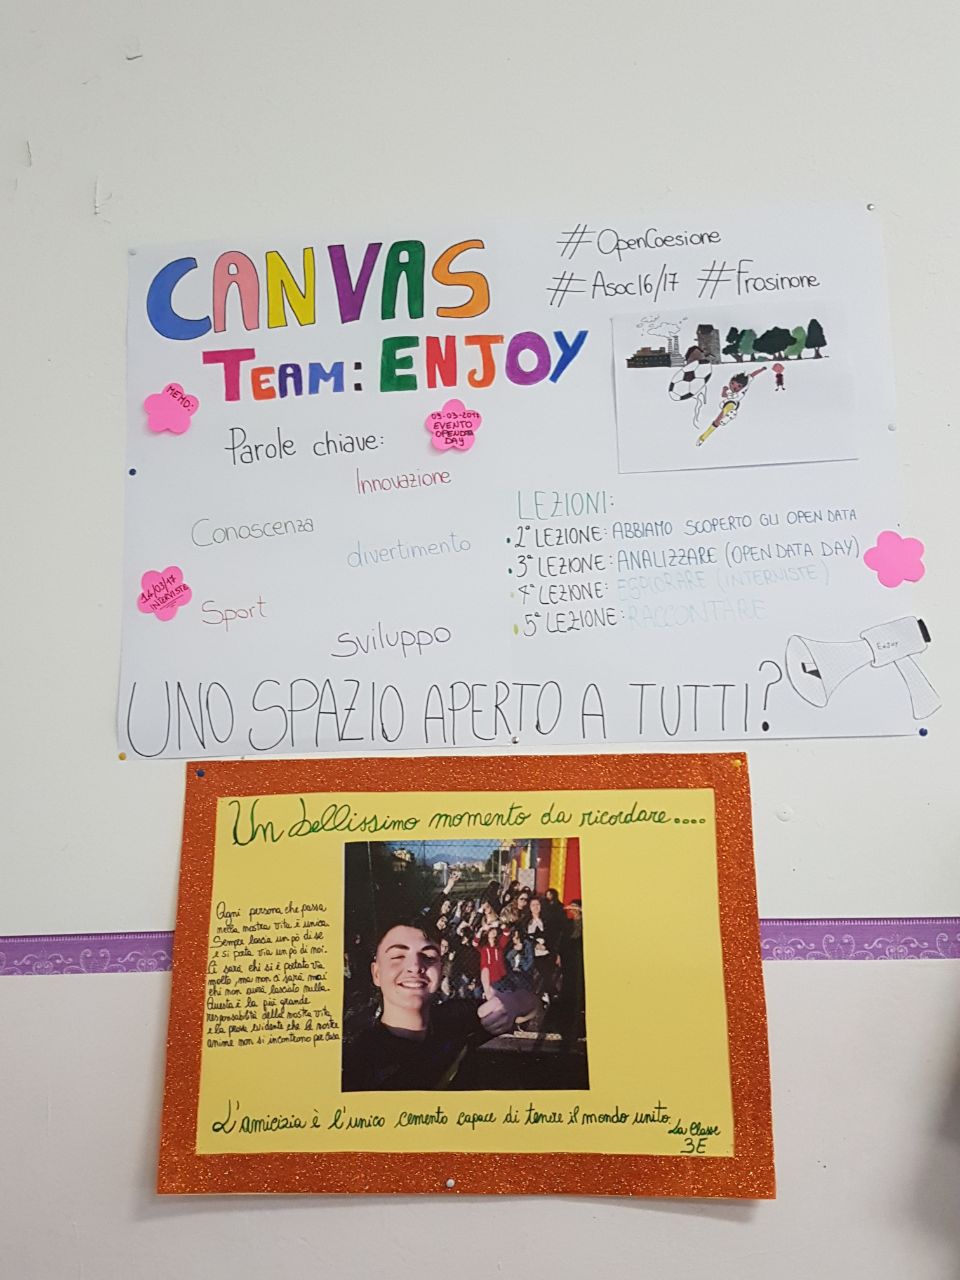 CANVAS
TEAM: ENJOY
#OpenCoesione
#Asoc16/17 #Frosinone
MEMO:
03-03-2017
EVENTO
OPENDATA
DAY
Parole chiave:
Innovazione
Conoscenza
divertimento
14/03/17
INTERVISTE
Sport
sviluppo
LEZIONI:
2° LEZIONE: ABBIAMO SCOPERTO GLI OPEN DATA
3° LEZIONE: ANALIZZARE (OPEN DATA DAY)
4° LEZIONE: ESPLORARE (INTERNISTE)
5° LEZIONE: RACCONTARE
Enjoy
UNO SPAZIO APERTO A TUTTI?
Un bellissimo momento da ricordare....
Ogni persona che passa
nella nostra vita è unica.
Sempre lascia un pò di se
e si porta via un pò di noi.
Ci sarà chi si è portato via
molto, ma non ci sarà mai
chi non avrà lasciato nulla.
Questa è la più grande
responsabilità della nostra vita
e la prova evidente che le nostre
anime non si incontrono per caso
L'amicizia è l'unico cemento capace di tenere il mondo unito.
La Classe
3E